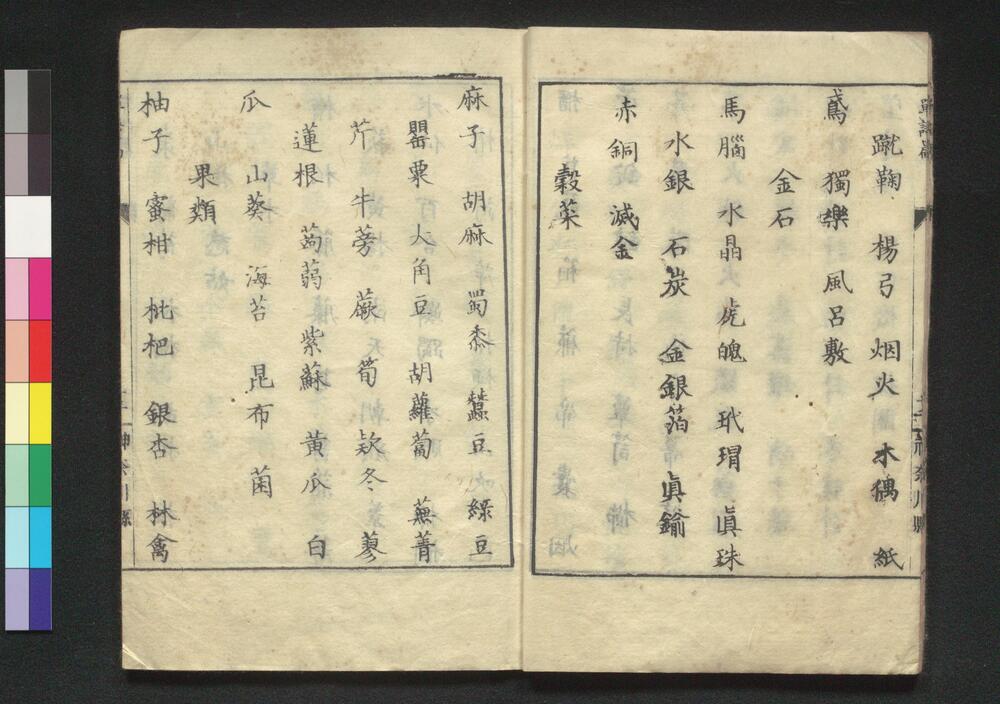 蹴鞠 楊弓 烟火 木偶 紙
鳶 獨樂 風呂敷
金石
馬腦 水晶 虎魄 玳瑁 眞珠
水銀 石炭 金銀箔 眞鍮
赤銅 滅金
穀菜
麻子 胡麻 蜀黍 蠶豆 綠豆
罌粟 大角豆 胡蘿蔔 蕪菁
芹 牛蒡 蕨 筍 欵冬 蓼
蓮根 蒟蒻 紫蘇 黃瓜 白
瓜 山葵 海苔 昆布 菌
果類
柚子 蜜柑 枇杷 銀杏 林禽